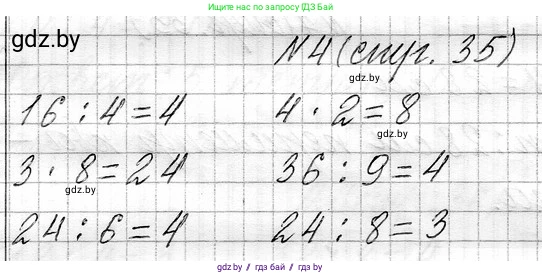 Ищите нас по запросу ГДЗ Бай
gdz.by
№4 (стр. 35)
gdz.by
16 : 4 = 4 4 · 2 = 8
gdz.by
3 · 8 = 24 36 : 9 = 4
gdz.by
24 : 6 = 4 24 : 8 = 3
gdz.by / гдз бай / gdz.by / гдз бай / gdz.by